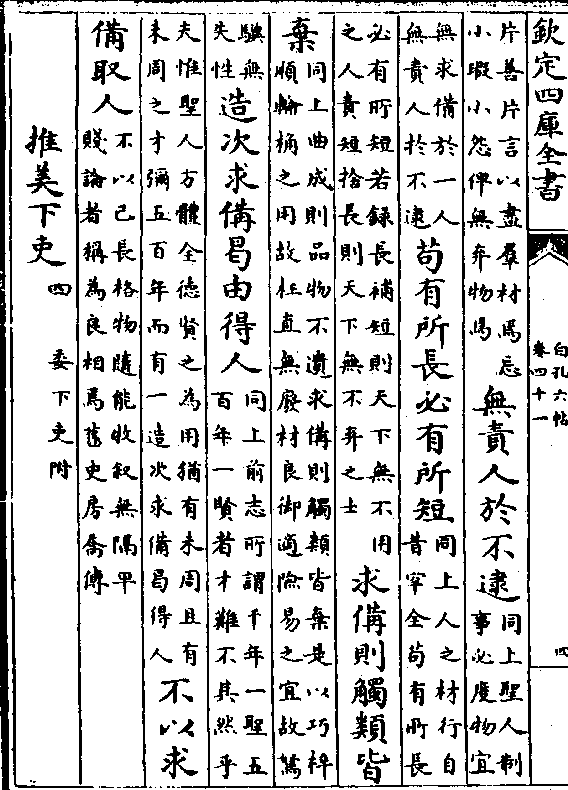 欽定四庫全書
白孔六帖
卷四十一
四
片善片言以盡羣材焉忘
小瑕小怨俾無弃物焉
無責人於不逮
同上聖人制
事必度物宜
無求備於一人
無責人於不逮
苟有所長必有所短
同上人之材行自
昔罕全苟有所長
必有所短若録長補短則天下無不用
之人責短捨長則天下無不弃之士
求備則觸類皆
棄
同上曲成則品物不遺求備則觸類皆棄是以巧梓
順輪桷之用故枉直無廢材良御適險易之宜故駑
驥無
失性
造次求備曷由得人
同上前志所謂千年一聖五
百年一賢者才難不其然乎
夫惟聖人方體全德賢之為用猶有未周且有
未周之才彌五百年而有一造次求備曷得人
不以求
備取人
不以己長格物隨能收叙無隔卑
賤論者稱為良相焉舊史房喬傳
推美下吏 四 委下吏附